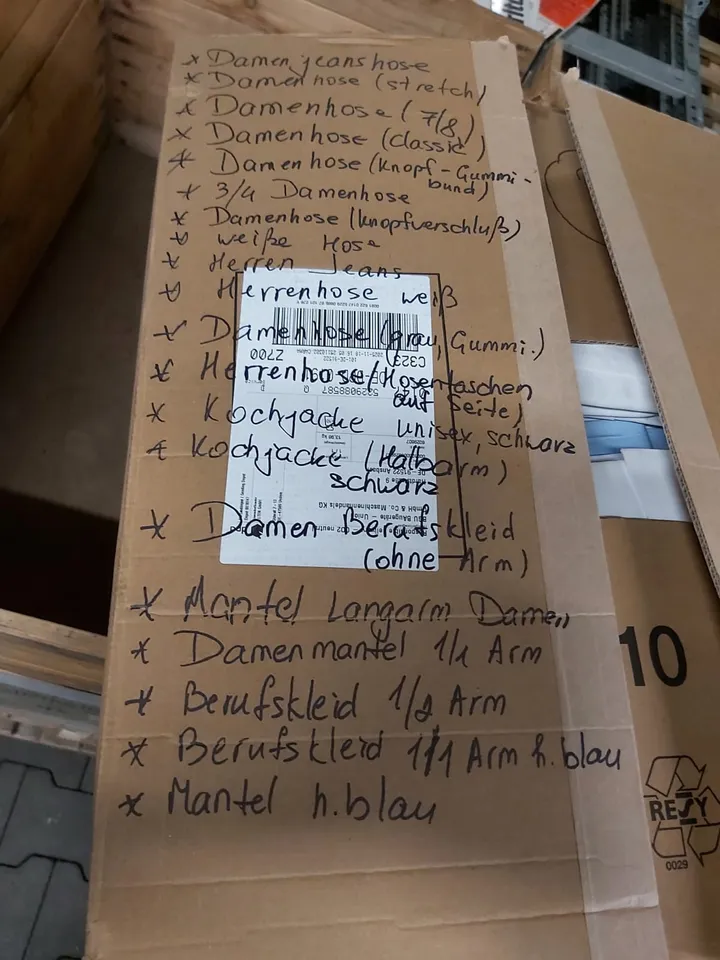 * Damenjeanshose
* Damenhose (stretch)
* Damenhose (7/8)
* Damenhose (classic)
* Damenhose (Knopf-Gummi-
bund)
* 3/4 Damenhose
* Damenhose (knopfverschluß)
* weiße Hose
* Herren Jeans
* Herrenhose weiß
* Damenhose (grau, Gummi.)
* Herrenhose/Hosentaschen
auf Seite)
* Kochjacke unisex, schwarz
* Kochjacke (Halbarm)
schwarz
* Damen Berufskleid
(ohne Arm)
* Mantel Langarm Damen
* Damenmantel 1/1 Arm
* Berufskleid 1/2 Arm
* Berufskleid 1/1 Arm h.blau
* Mantel h.blau
Z700
C323
5229088587
GmbH & Co. Maschinenhandels KG
10
RESY
0029